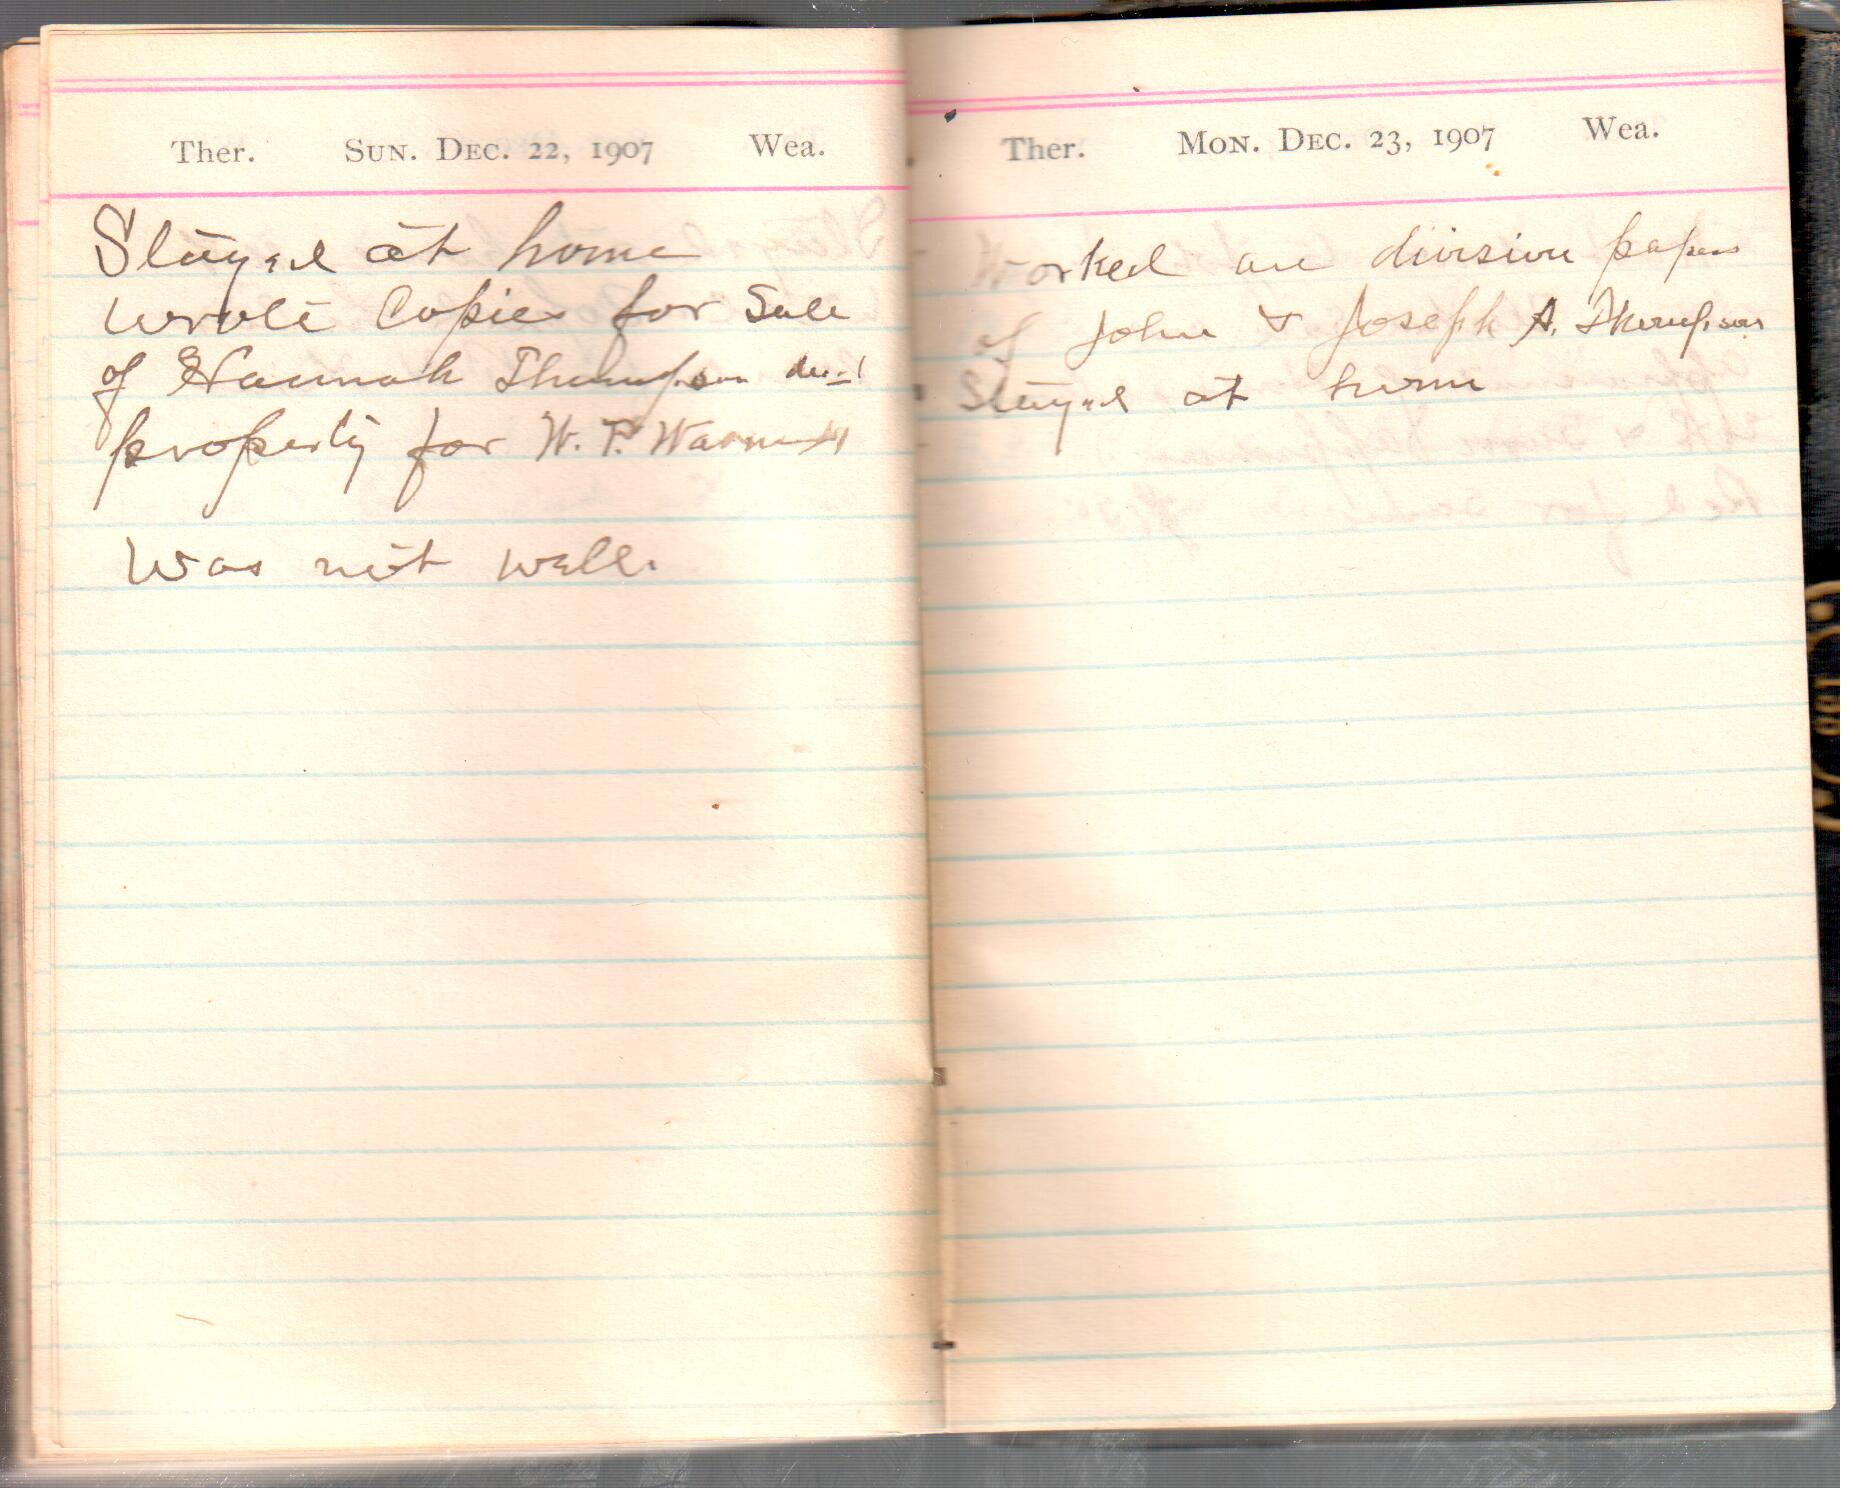 Ther. Sun. Dec. 22, 1907 Wea.
Stayed at home
wrote Copies for Sale
of Hannah Thompson decd
property for W. F.
Was not well.
Ther. Mon. Dec. 23, 1907 Wea.
Worked on division papers
of John & Joseph A. Thompson
Stayed at home